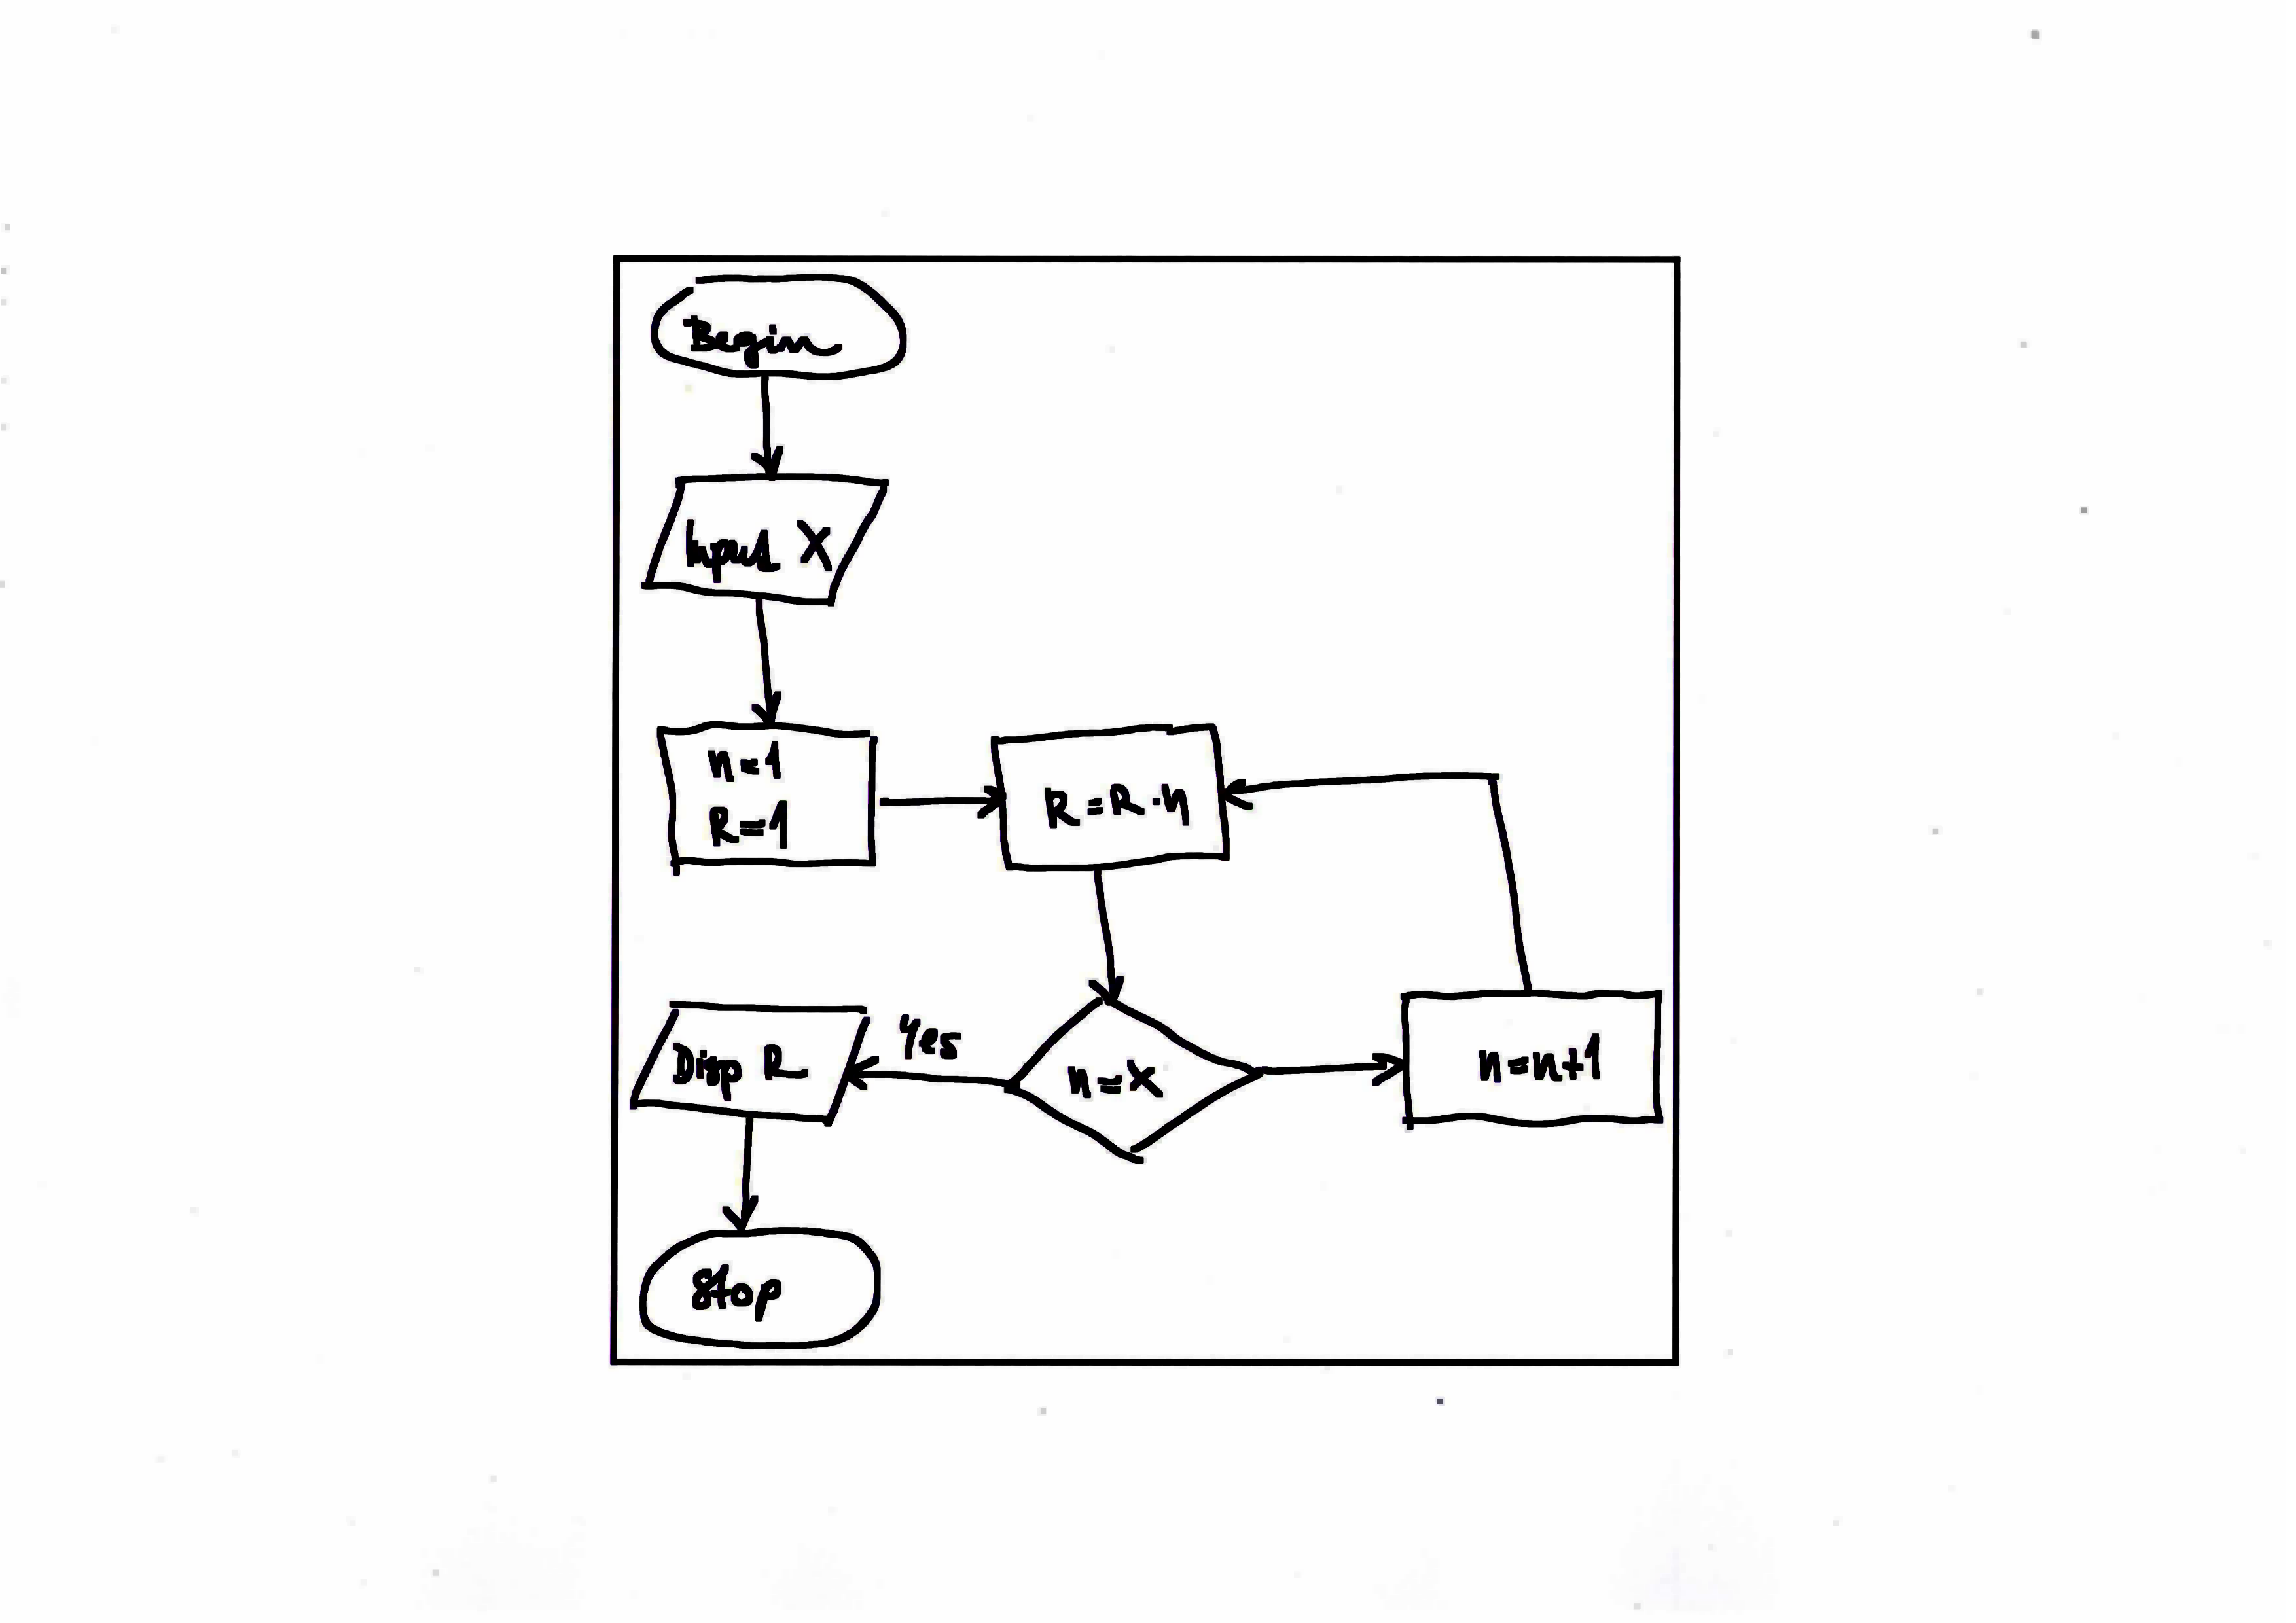 Begin
Input X
n=1
R=1
R=R·n
n=X
Yes
Disp R
n=n+1
Stop